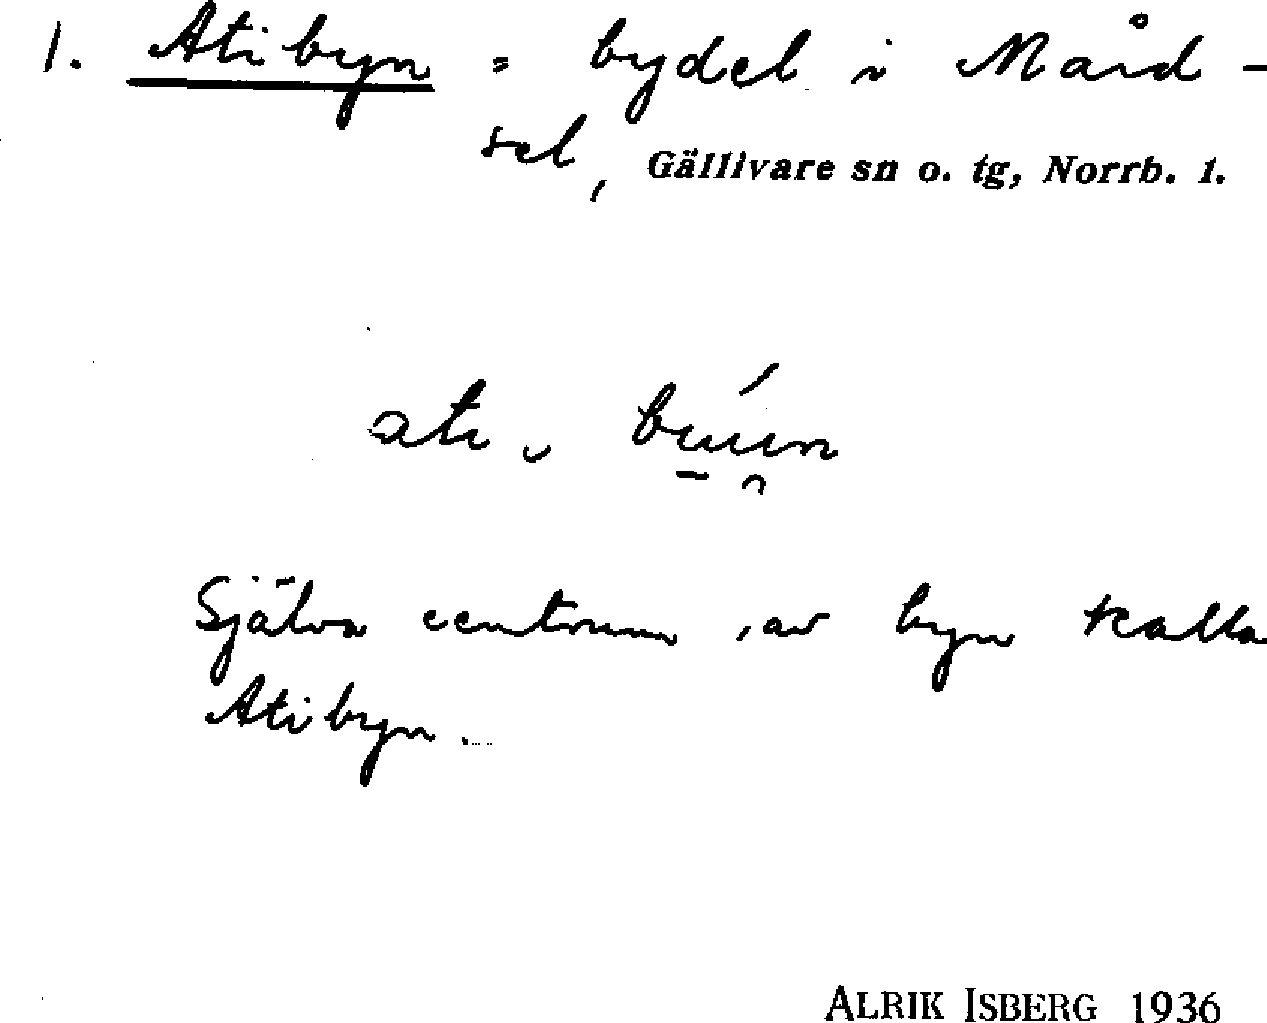 1. Atibyn = bydel i Mård-
sel, Gällivare sn o. tg, Norrb. l.
ati
Själva centrum av byn kalla
Atibyn.
ALRIK ISBERG 1936